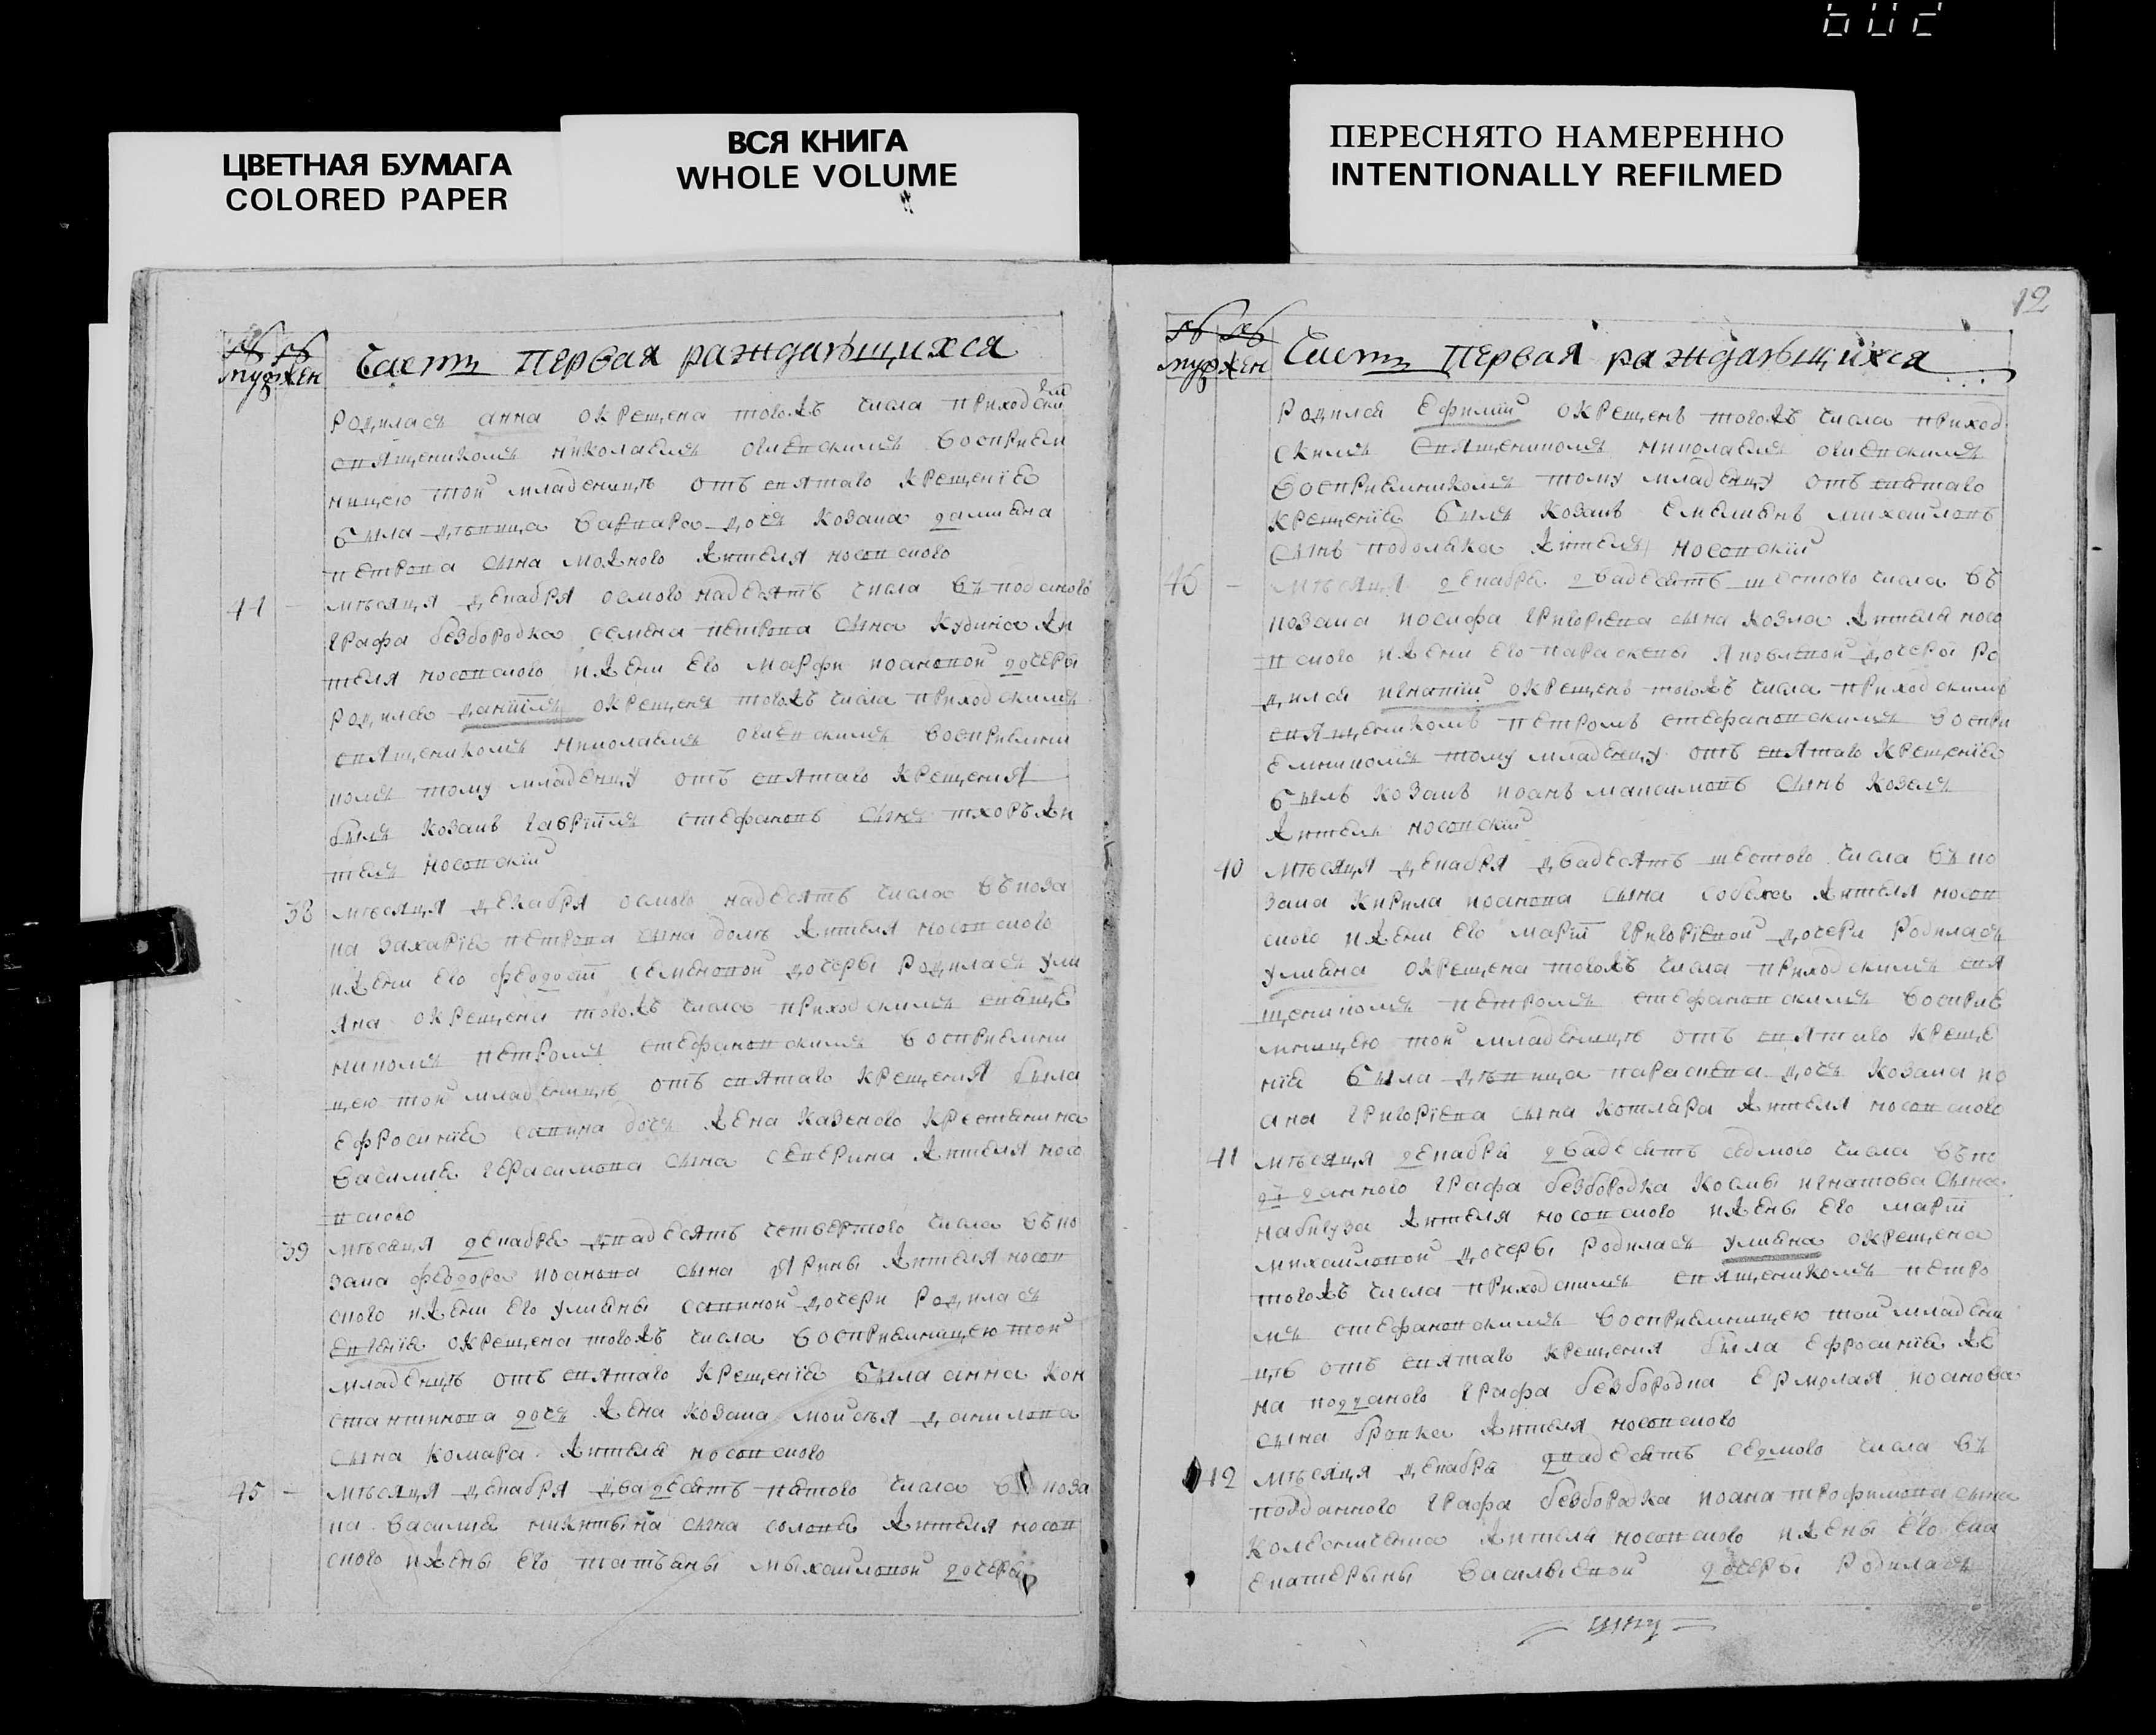 602
ЦВЕТНАЯ БУМАГА
COLORED PAPER
ВСЯ КНИГА
WHOLE VOLUME
ПЕРЕСНЯТО НАМЕРЕННО
INTENTIONALLY REFILMED
муж жен
Часть первая раждающихся
родилась анна окрещена тогожъ числа приходским
священикомъ николаемъ огиевскимъ восприем
ницею той младеницѣ отъ святаго крещенїя
была дѣвица варвара дочь козака дамияна
петрова сына можного жителя носовского
44 – мѣсяца декабря осмого надесять числа въ подданого
графа безбородка семена петрова сына кудина жи
теля носовского и жени его марфи иоановой дочеры
родился данїилъ окрещенъ тогожъ числа приходскимъ
священикомъ николаемъ огиевскимъ восприемни
комъ тому младенцу отъ святаго крещения
былъ козакъ гаврїилъ стефановъ сынъ тхоръ жи
тель носовскїй
38 мѣсяця декабря осмого надесять числа въ коза
ка захарїя петрова сына жителя носовского
и жени его феодосїи семеновой дочеры родилась ули
яна окрещена тогожъ числа приходскимъ свяще
никомъ петромъ стефановскимъ восприемни
цею той младеницѣ отъ святаго крещения была
ефросинїя савина дочь жена казеного крестянина
василия герасимова сына северина жителя носо
вского
39 мѣсяця декабря двадесять четвертого числа въ ко
зака феодора иоанова сына ярины жителя носов
ского и жени его улияны савиной дочери родилась
евгенїя окрещена тогожъ числа восприемницею той
младеницѣ отъ святаго крещенїя была анна кон
стантинова дочь жена козака моисея данилова
сына комара жителя носовского
45 – мѣсяця декабря двадесять пятого числа въ коза
ка василия никитына сына солопя жителя носов
ского и жены его татьяны мыхайловой дочеры
12
муж жен
Часть первая раждающихся
родился ефимїй окрещенъ тогожъ числа приход
скимъ священикомъ николаемъ огиевскимъ
восприемникомъ тому младенцу отъ святаго
крещенїя былъ козакъ емелиянъ михайловъ
сынъ подоляка житель носовскїй
46 – мѣсяця декабря двадесять шестого числа въ
козака иосифа григорїева сына козла жителя носо
вского и жени его параскевы яковлевой дочеры ро
дился игнатїй окрещенъ тогожъ числа приходскимъ
священикомъ петромъ стефановскимъ воспри
емникомъ тому младенцу отъ святаго крещенїя
былъ козакъ иоанъ максимовъ сынъ козелъ
житель носовскїй
40 мѣсяця декабря двадесять шестого числа въ ко
зака кирила иоанова сына жителя носов
ского и жени его марїи григорїевой дочери родилась
улияна окрещена тогожъ числа приходскимъ свя
щеникомъ петромъ стефановскимъ восприе
мницею той младеницѣ отъ святаго креще
нїя была дѣвица параскева дочь козака ио
ана григорїева сына котляра жителя носовского
41 мѣсяця декабря двадесять седмого числа въ по
дданного графа безбородка космы игнатова сына
жителя носовского и жены его марїи
михайловой дочеры родилась улияна окрещена
тогожъ числа приходскимъ священикомъ петро
мъ стефановскимъ восприемницею той младени
цѣ отъ святаго крещения была ефросинїя же
на подданого графа безбородка ермолая иоанова
сына жителя носовского
42 мѣсяця декабря двадесять седмого числа въ
подданного графа безбородка иоана трофимова сына
жителя носовского и жены его
екатерыны васильевой дочеры родилась